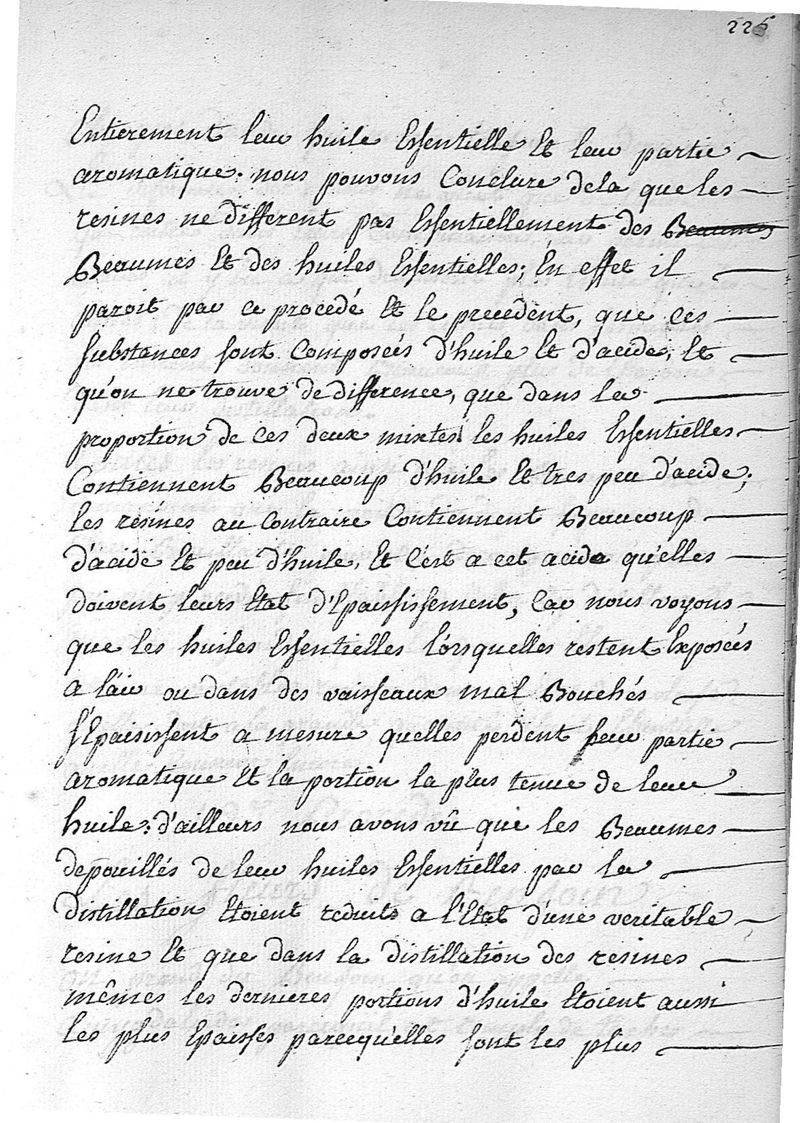 225
Entierement leur huile Essentielle Et leur partie
aromatique. nous pouvons Conclure dela que les
resines ne different pas Essentiellement des Beaumes
Beaumes Et des huiles Essentielles; En effet il
paroit par ce procedé Et le precedent, que ces
substances sont Composées d'huile Et d'acide, Et
qu'on ne trouve de difference, que dans la
proportion de ces deux mixtes. les huiles Essentielles
Contiennent Beaucoup d'huile Et tres peu d'acide;
les résines au Contraire Contiennent Beaucoup
d'acide Et peu d'huile, Et c'est a cet acide qu'elles
doivent leurs Etat d'Epaississement, Car nous voyons
que les huiles Essentielles lorsquelles restent Exposées
a l'air ou dans des vaisseaux mal Bouchés
s'Epaisissent a mesure quelles perdent leur partie
aromatique Et la portion la plus tenue de leur
huile. d'ailleurs nous avons vû que les Beaumes
depouillés de leur huiles Essentielles par la
distillation Etoient reduits a l'Etat d'une veritable
resine Et que dans la distillation des resines
mêmes les dernieres portions d'huile Etoient aussi
les plus Epaisses parcequ'elles sont les plus